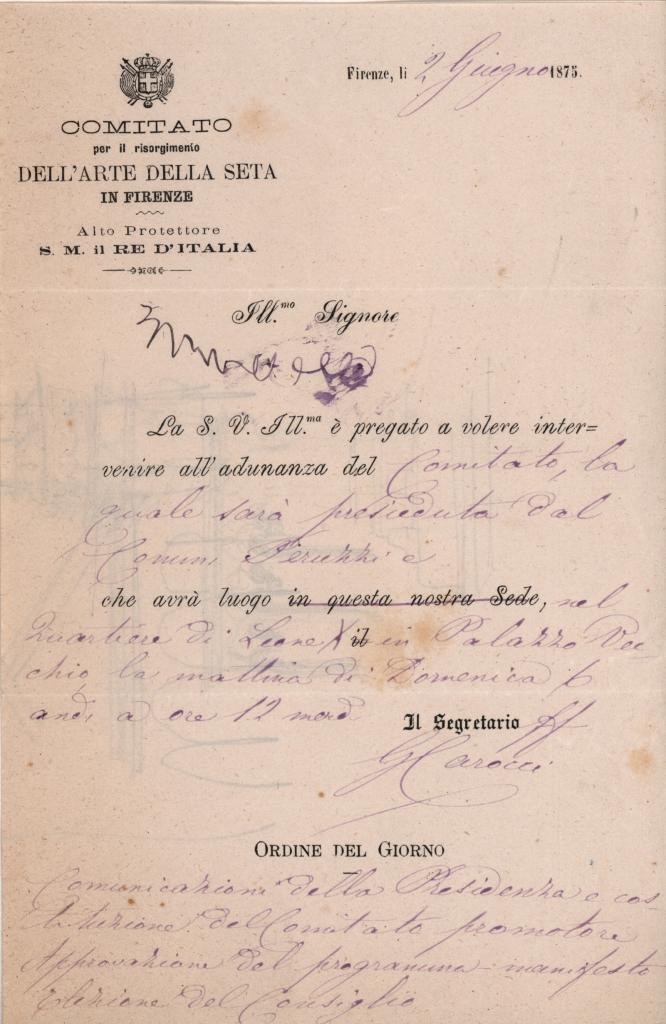 Firenze, li 2 Giugno 1875.
COMITATO
per il risorgimento
DELL'ARTE DELLA SETA
IN FIRENZE
Alto Protettore
S. M. il RE D'ITALIA
Ill.mo Signore
La S. V. Ill.ma è pregato a volere inter=
venire all'adunanza del Comitato, la
quale sarà presieduta dal
Comm. Peruzzi e
che avrà luogo in questa nostra Sede, nel
Quartiere di Leone X il in Palazzo Vec
chio la mattina di Domenica 6
and. a ore 12 merid
Il Segretario ff
G Carocci
ORDINE DEL GIORNO
Comunicazioni della Presidenza e cos
tituzione del Comitato promotore
Approvazione del programma-manifesto
Elezione del Consiglio